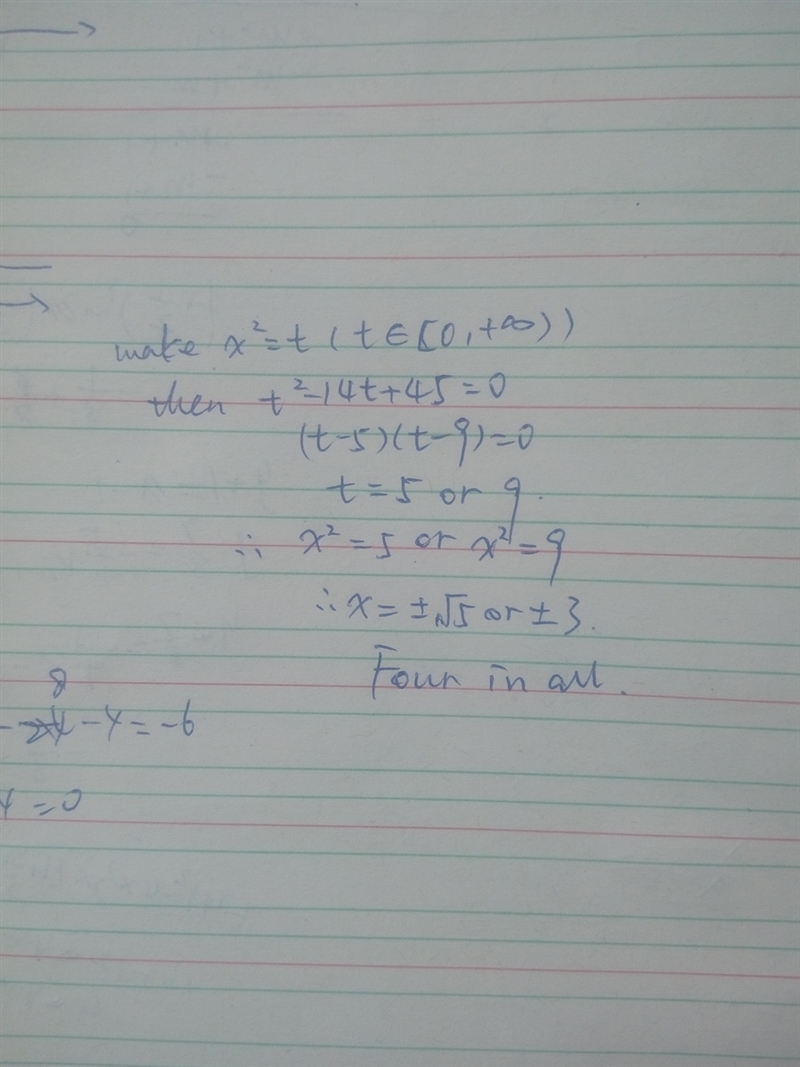 make x²=t (t∈[0,+∞))
then t²-14t+45=0
(t-5)(t-9)=0
t=5 or 9.
∴ x²=5 or x²=9
∴x=±√5 or ±3.
Four in all.
8
-4=-6
=0